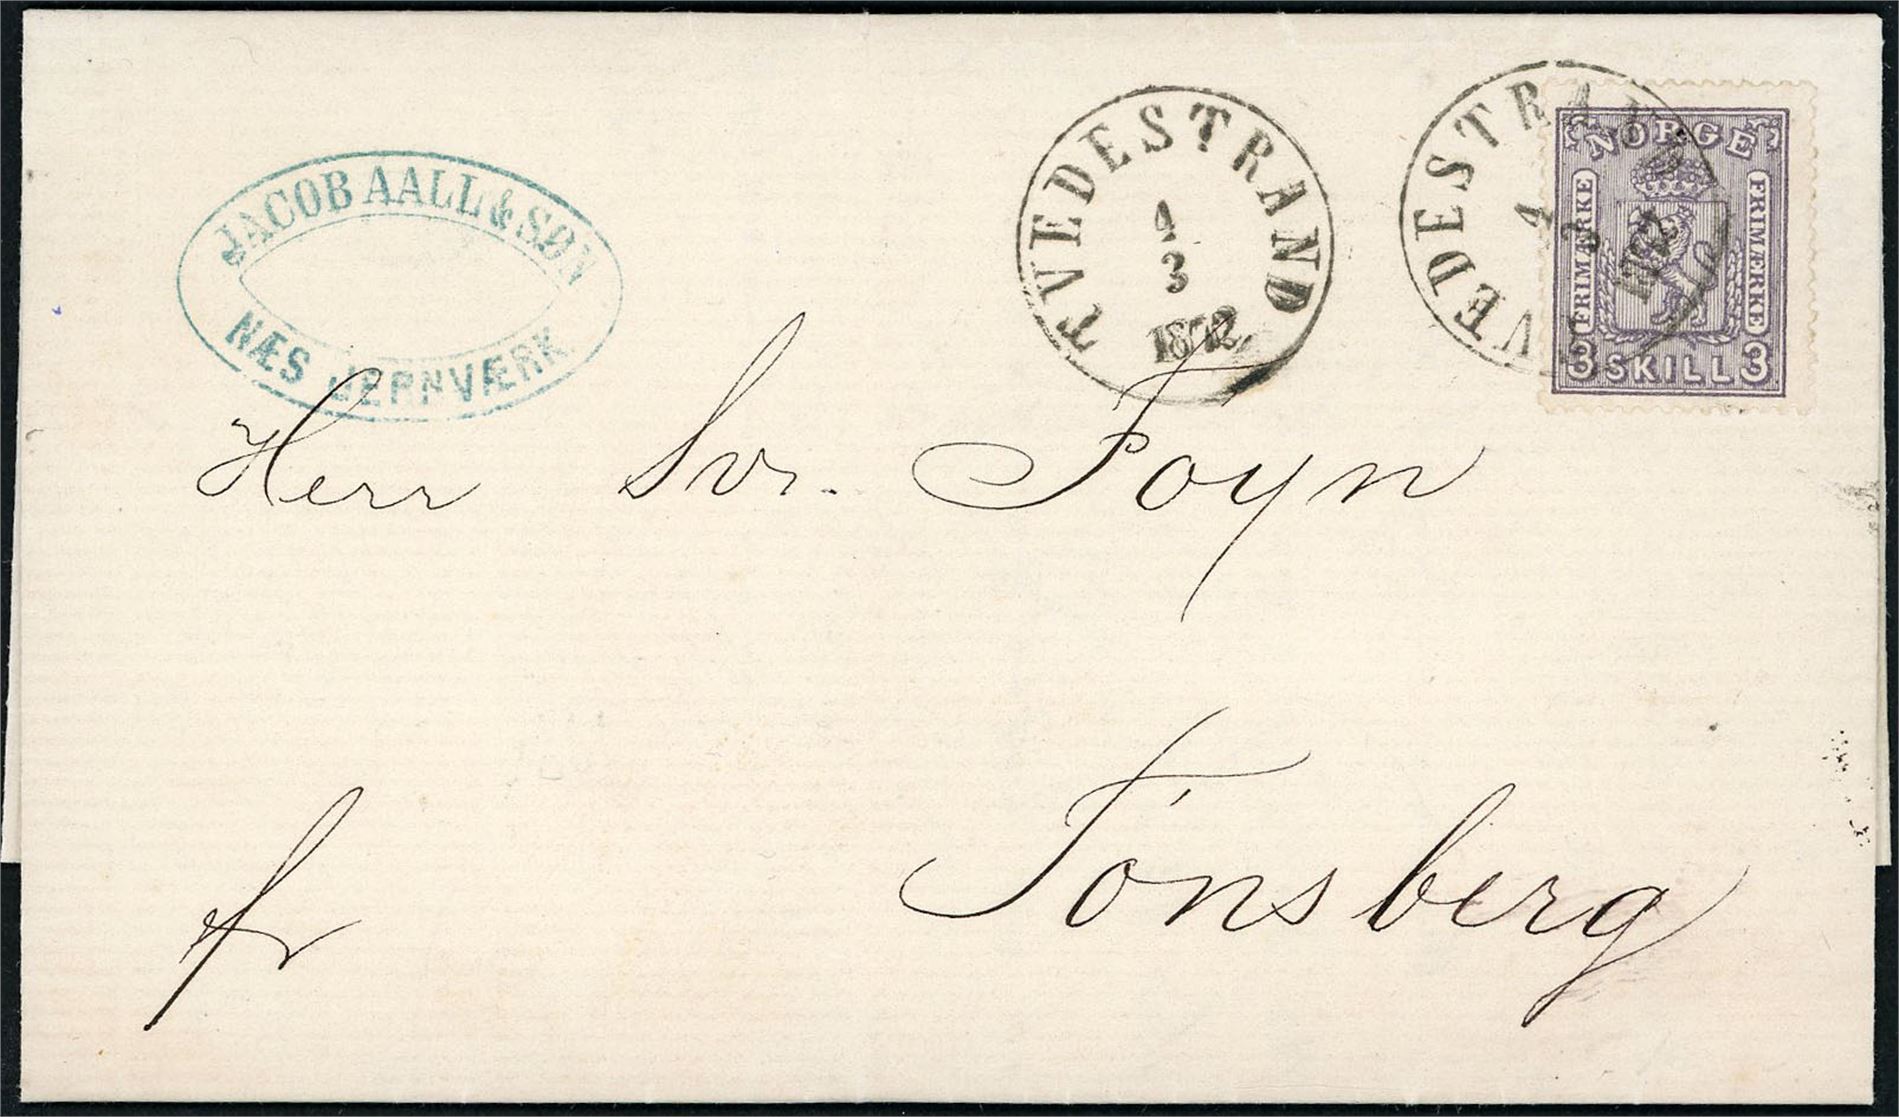 JACOB AALL & SØN
NÆS JERNVÆRK.
TVEDESTRAND
4
3
1872
TVEDESTRAND
4
3
1872
NORGE
FRIMÆRKE
FRIMÆRKE
3 SKILL 3
Herr Svr. Foyn
Tönsberg
fr